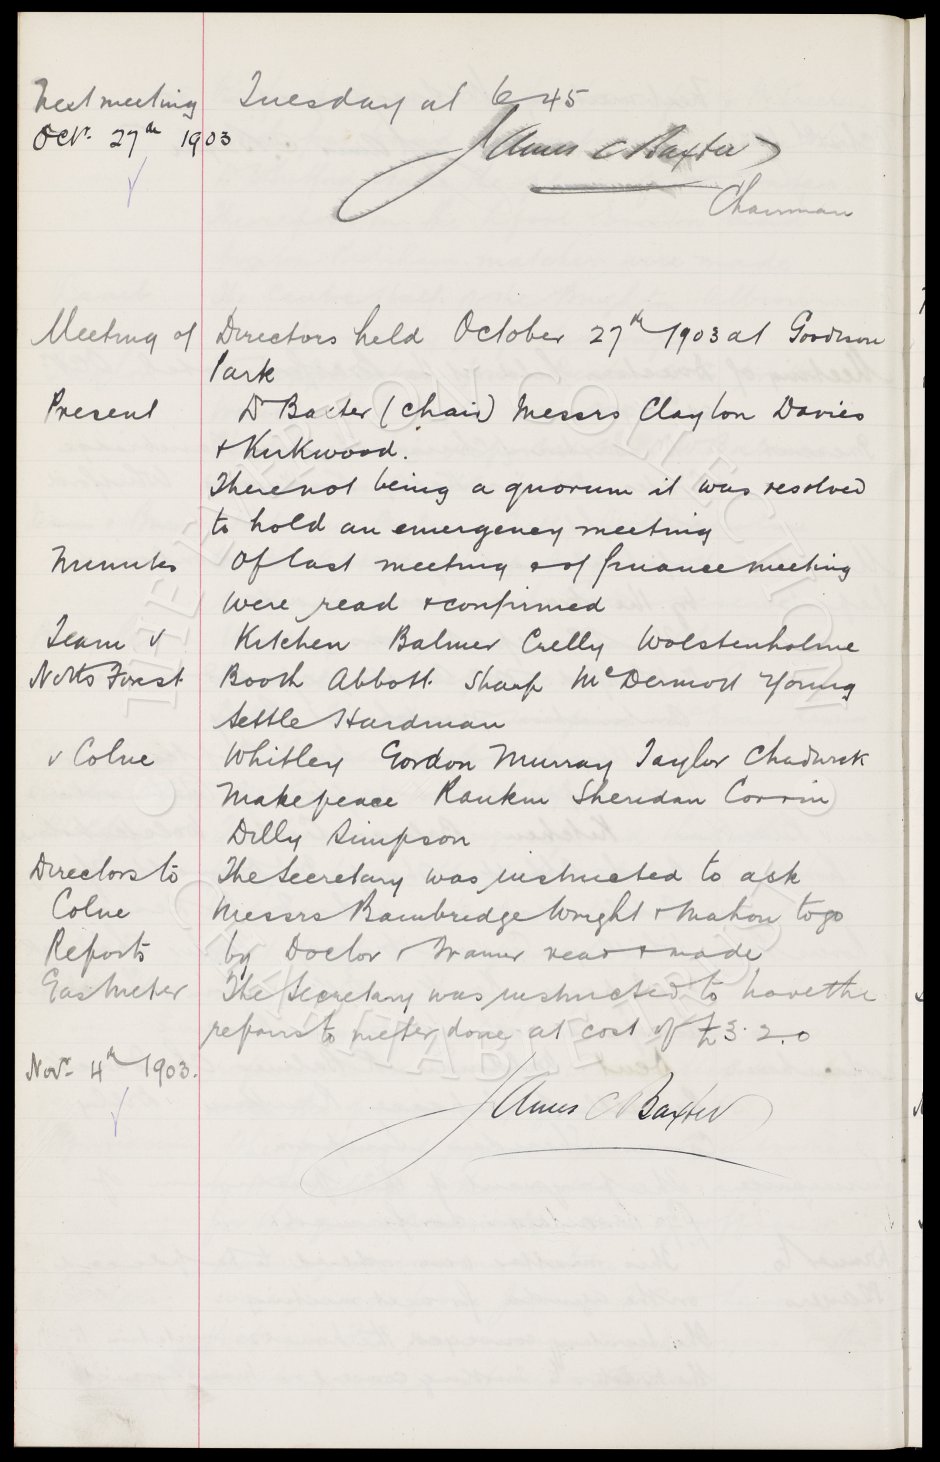 Next meeting Tuesday at 6-45
Octr. 27th 1903 James C Baxter
Chairman
Meeting of Directors held October 27th 1903 at Goodison
Park
Present Dr Baxter (chair) Messrs Clayton Davies
& Kirkwood.
There not being a quorum it was resolved
to hold an emergency meeting
Minutes Of last meeting & of finance meeting
were read & confirmed
Team v Kitchen Balmer Crelly Wolstenholme
Notts Forest Booth Abbott Sharp McDermott Young
Settle Hardman
v Colne Whitley Gordon Murray Taylor Chadwick
Makepeace Rankin Sheridan Corrin
Dilly Simpson
Directors to The Secretary was instructed to ask
Colne Messrs Bainbridge Wright & Mahon to go
Reports by Doctor & Trainer read & made
Gas Meter The Secretary was instructed to have the
repairs to meter done at cost of £3.2.0
Novr. 4th 1903. James C Baxter
THE EVERTON COLLECTION
CHARITABLE